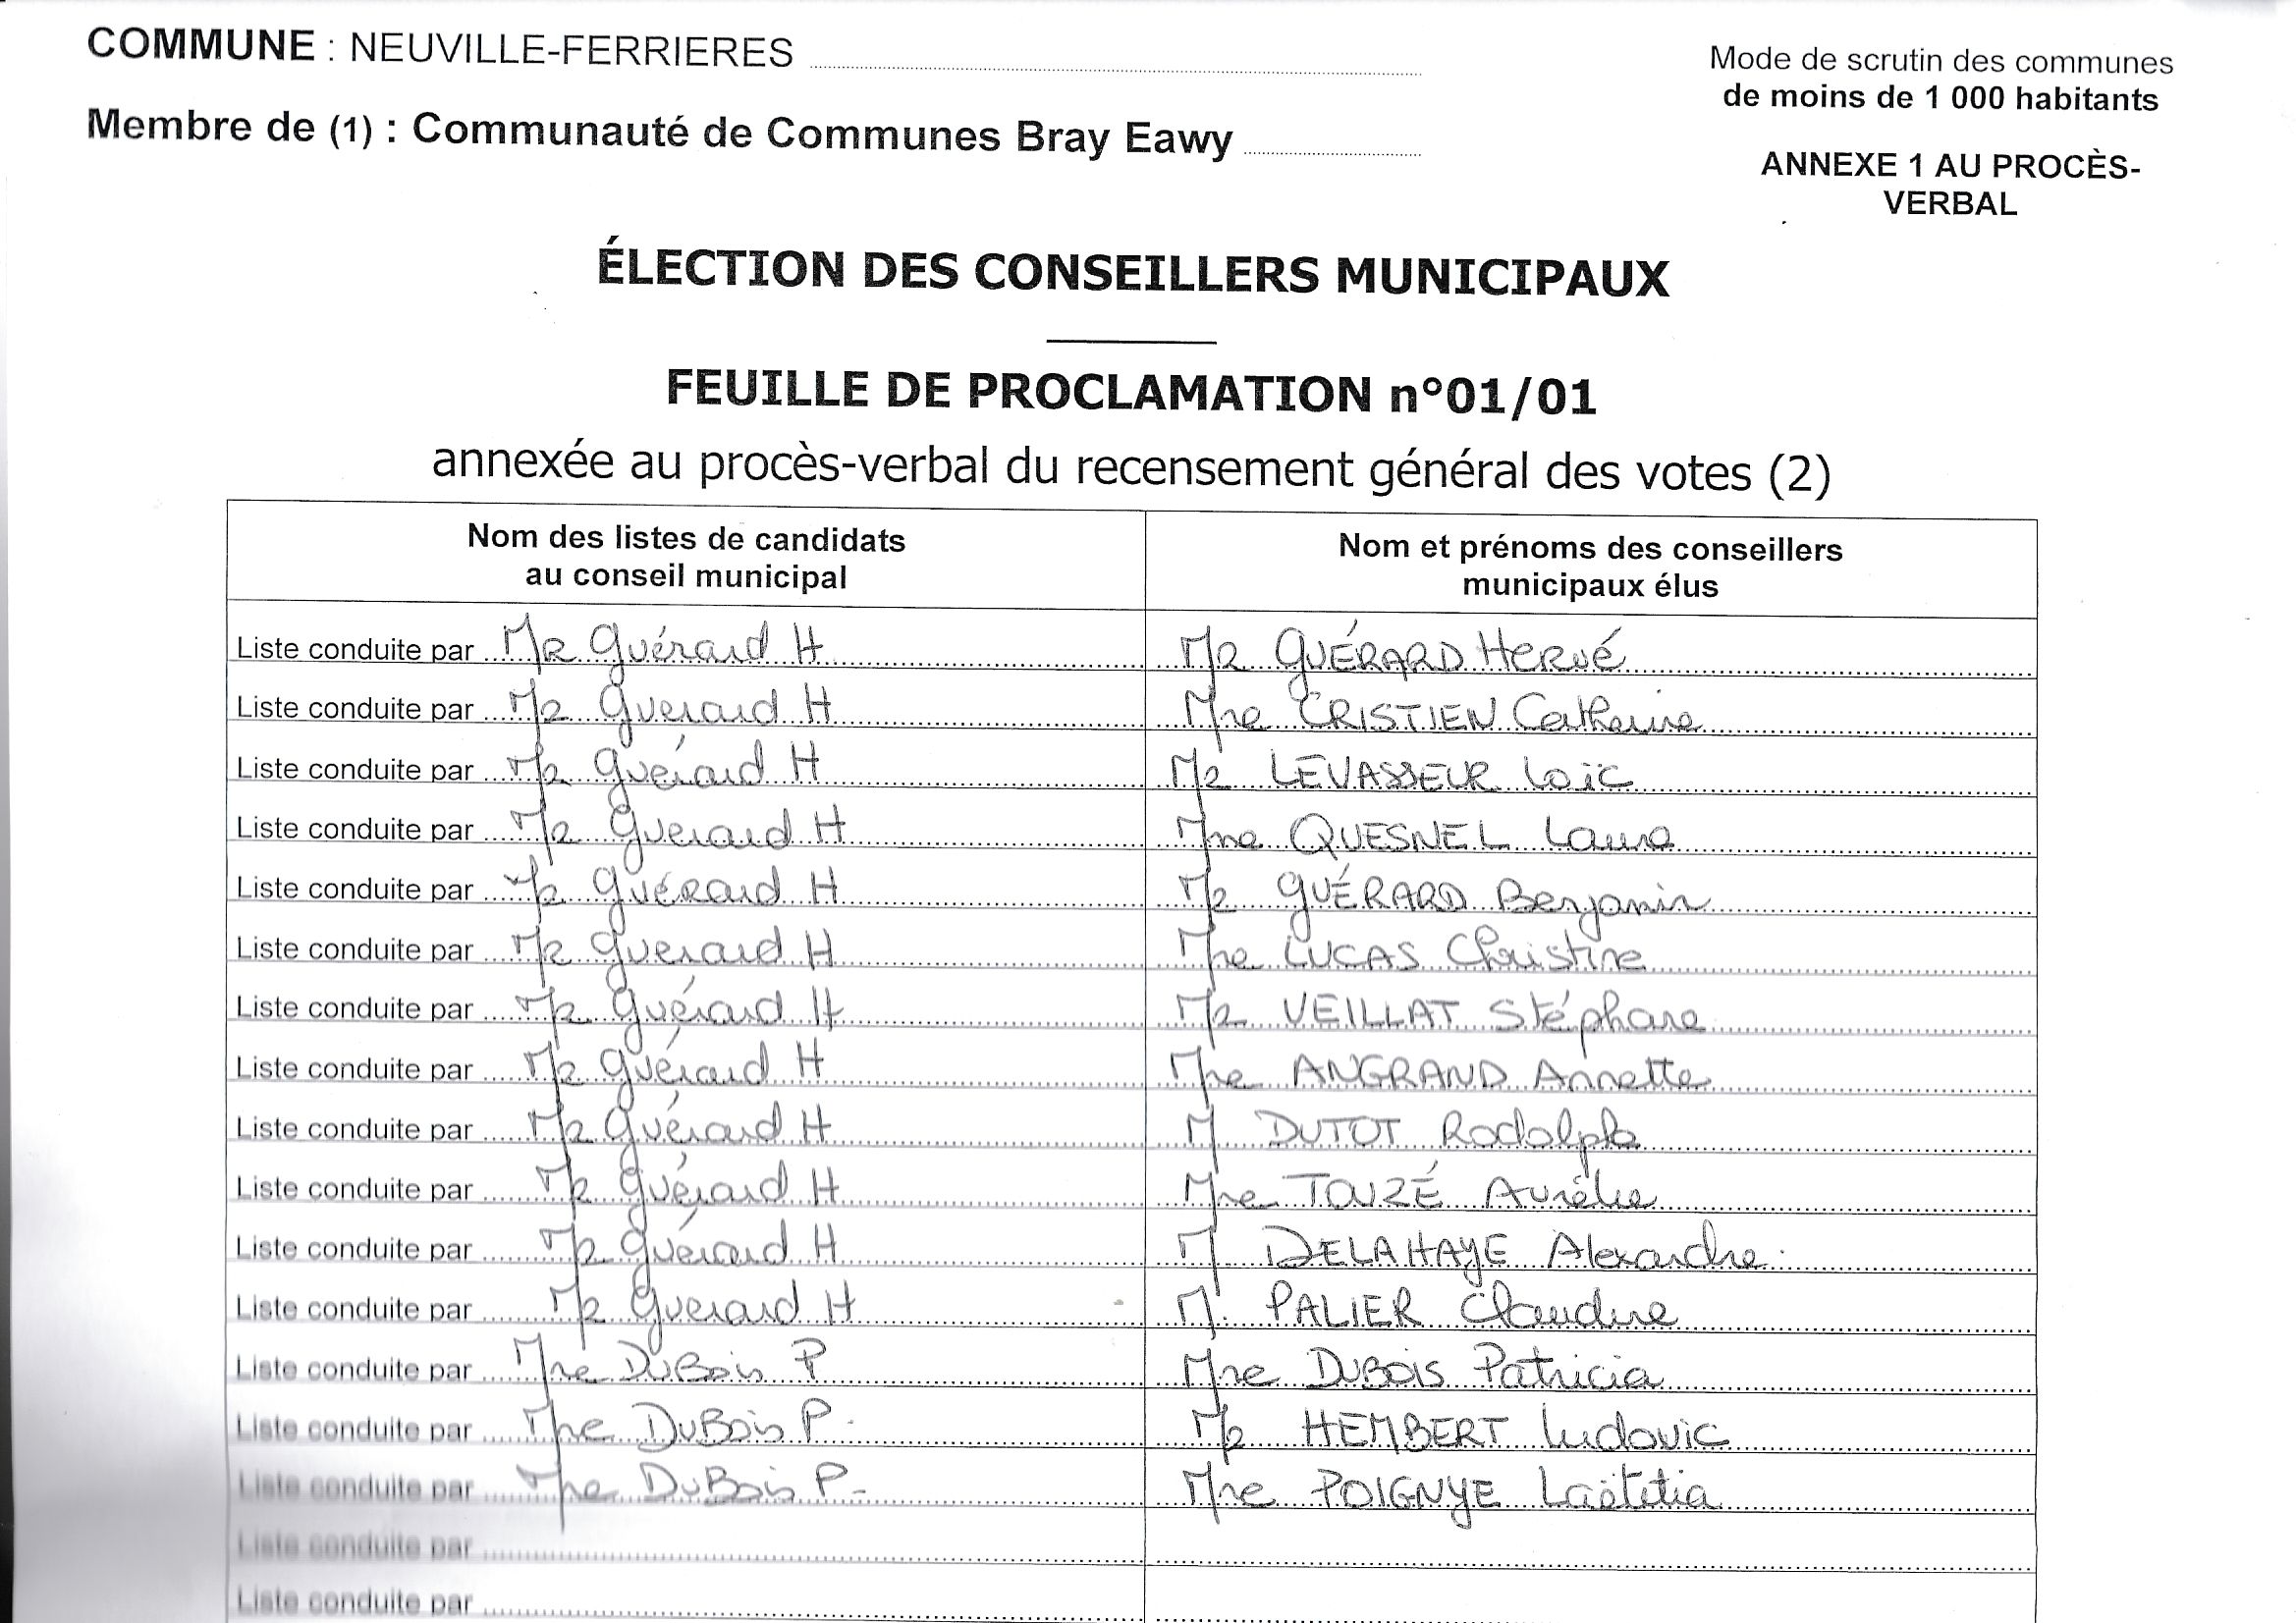 COMMUNE : NEUVILLE-FERRIERES
Mode de scrutin des communes
de moins de 1 000 habitants
Membre de (1) : Communauté de Communes Bray Eawy
ANNEXE 1 AU PROCÈS-
VERBAL
ÉLECTION DES CONSEILLERS MUNICIPAUX
FEUILLE DE PROCLAMATION n°01/01
annexée au procès-verbal du recensement général des votes (2)
Nom des listes de candidats
au conseil municipal
Nom et prénoms des conseillers
municipaux élus
Liste conduite par MR Guérard H MR GUÉRARD Hervé
Liste conduite par MR Guerard H Mme CRISTIEN Catherine
Liste conduite par MR Guérard H MR LEVASSEUR Loïc
Liste conduite par MR Guerard H Mme QUESNEL Laura
Liste conduite par MR Guérard H MR GUÉRARD Benjamin
Liste conduite par MR Guerard H Mme LUCAS Christine
Liste conduite par MR Guérard H MR VEILLAT Stéphane
Liste conduite par MR Guérard H Mme ANGRAND Annette
Liste conduite par MR Guérard H M DUTOT Rodolphe
Liste conduite par MR Guérard H Mme TOUZÉ Aurélie
Liste conduite par MR Guérard H M DELAHAYE Alexandre
Liste conduite par MR Guerard H M. PALIER Claudine
Liste conduite par Mme DuBois P Mme DUBOIS Patricia
Liste conduite par Mme DuBois P. MR HEMBERT Ludovic
Liste conduite par Mme DuBois P. Mme POIGNYE Laëtitia
Liste conduite par
Liste conduite par